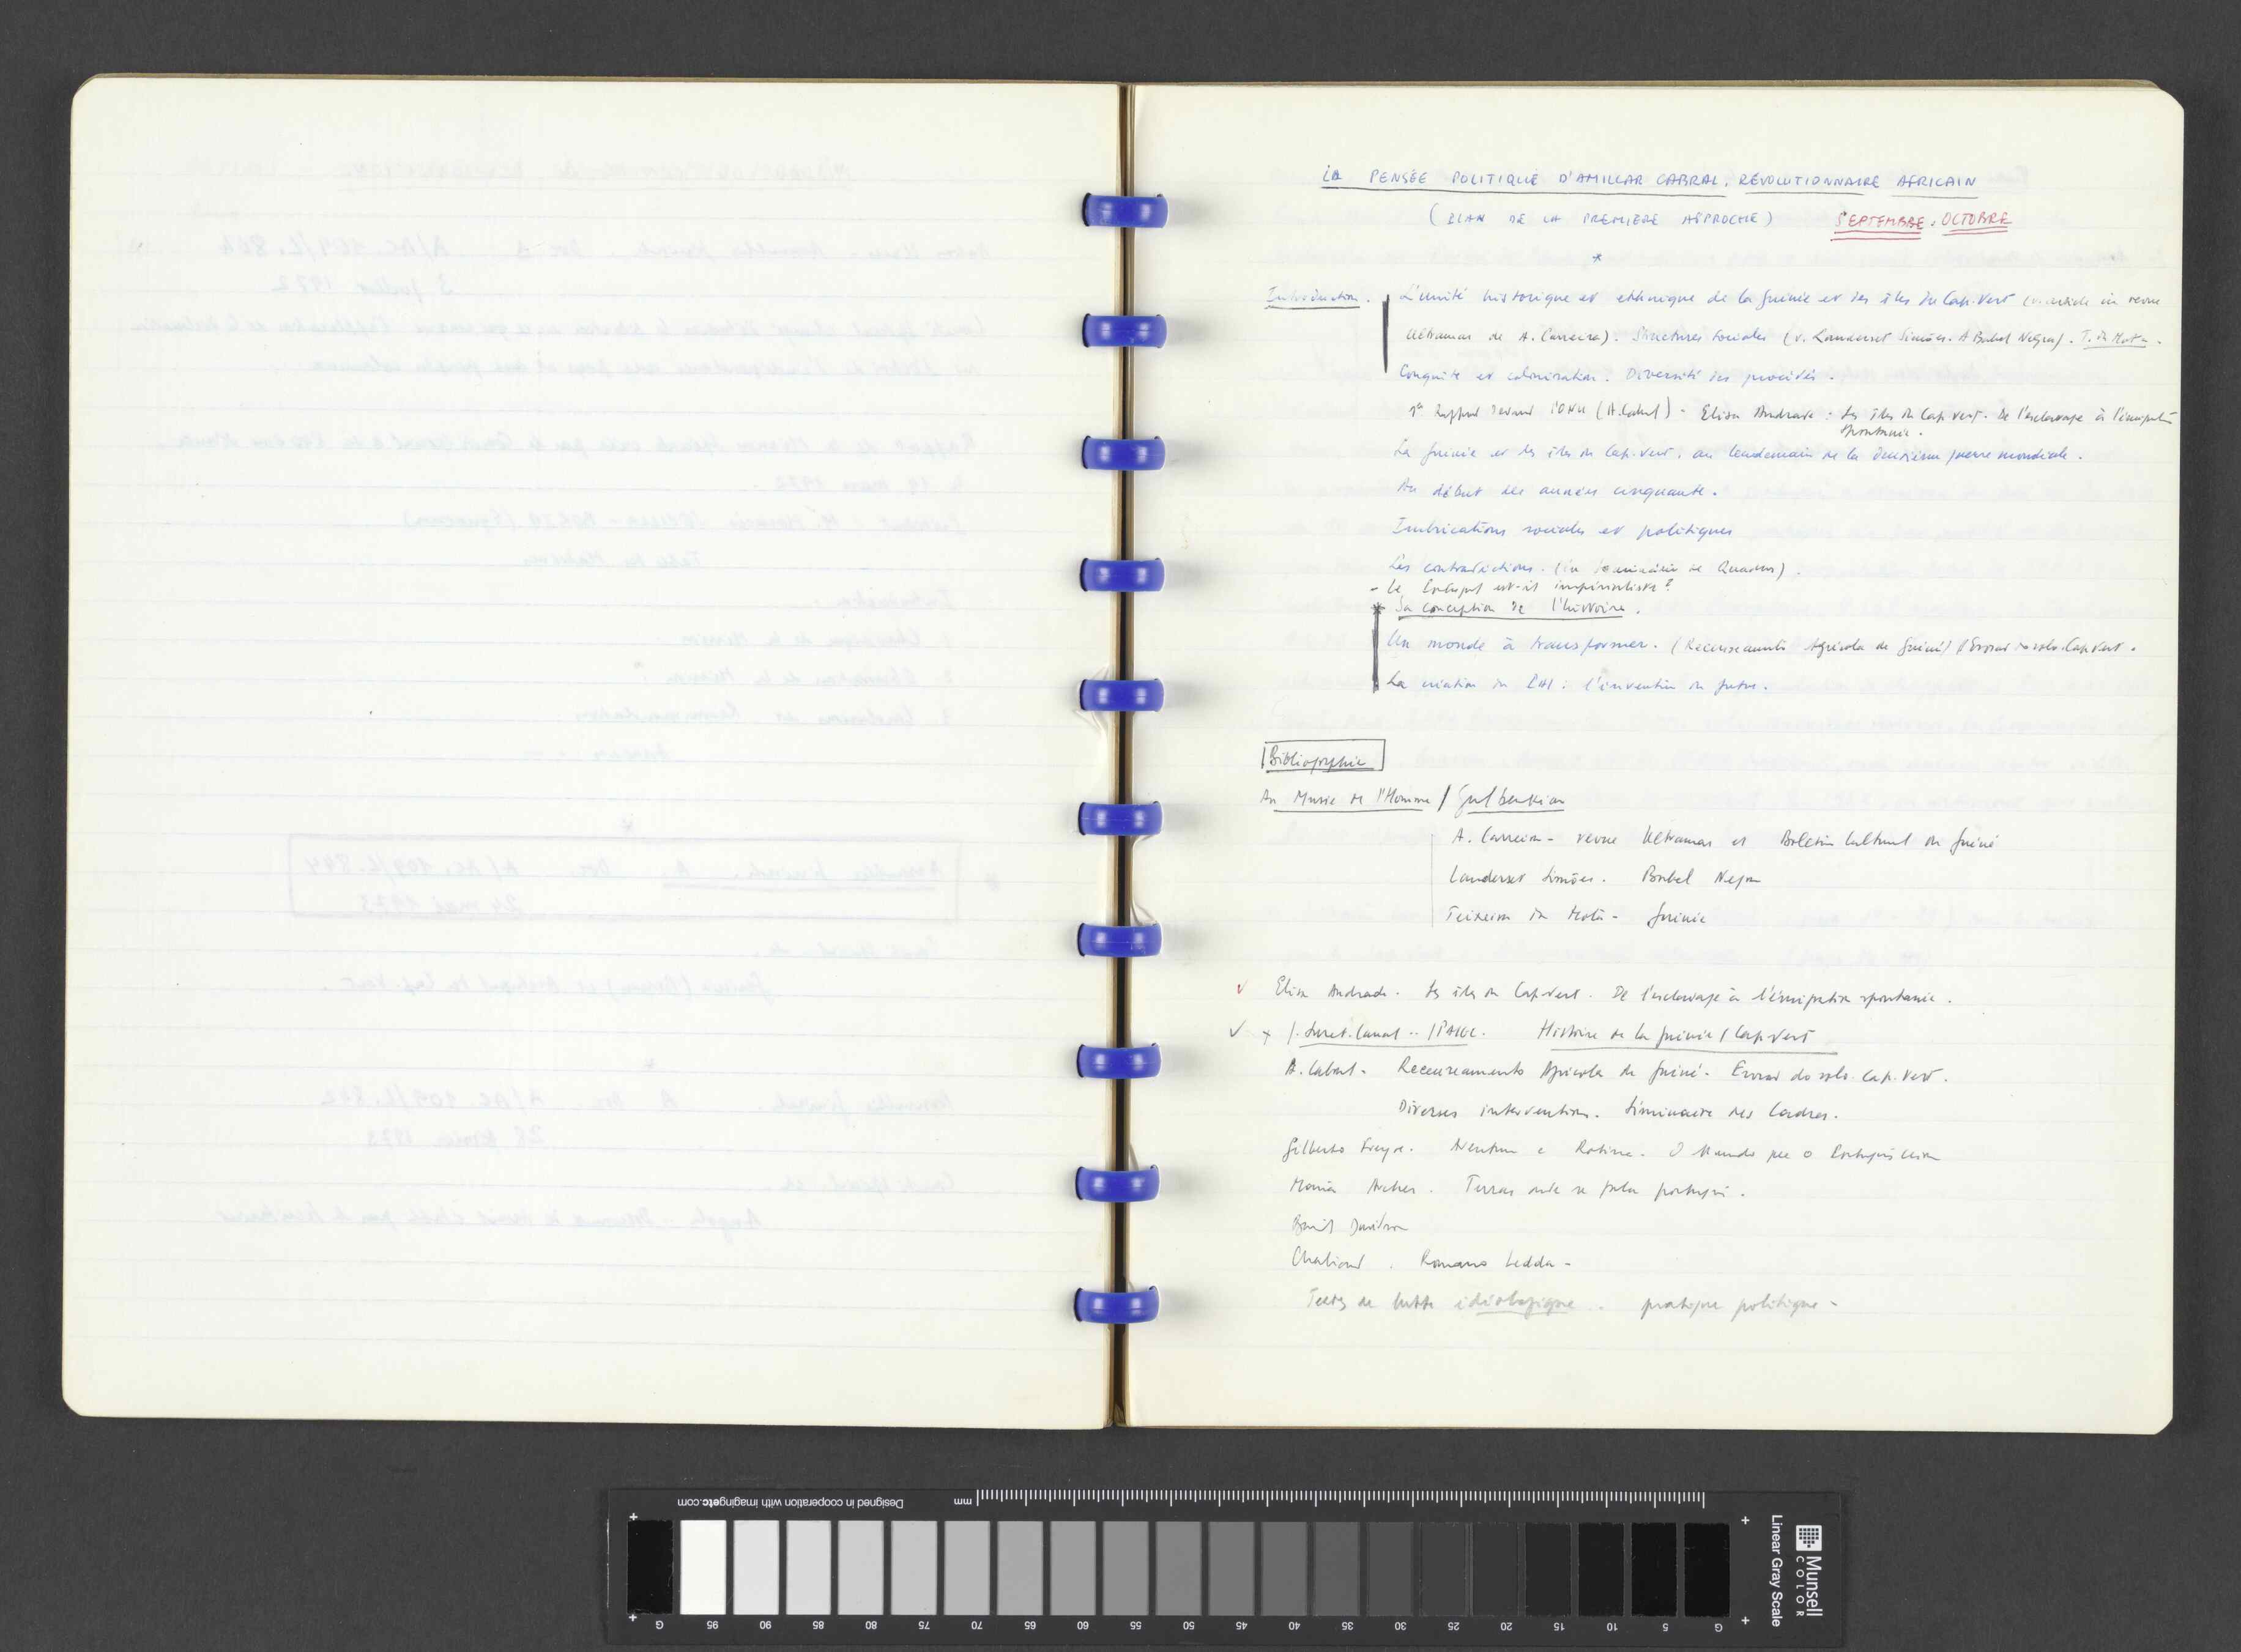 LA PENSÉE POLITIQUE D'AMILCAR CABRAL, REVOLUTIONNAIRE AFRICAIN
(PLAN DE LA PREMIERE APPROCHE) SEPTEMBRE. OCTOBRE
*
Introduction. L'unité historique et ethnique de la Guinée et des îles du Cap-Vert (v. article in revue
Ultramar de A. Carreira). Structures sociales (v. Landerset Simões. A Babel Negra). T. da Mota.
Conquête et colonisation. Diversité des procédés.
1er Rapport devant l'ONU (A. Cabral). Elisa Andrade: Les îles du Cap Vert. De l'esclavage à l'émigration
spontanée.
La Guinée et les îles du Cap-Vert, au lendemain de la deuxième guerre mondiale.
Au début des années cinquante.
Imbrications sociales et politiques
Les contradictions. (in séminaire de Quadros).
- Le Portugal est-il impérialiste?
* Sa conception de l'histoire.
Un monde à transformer. (Recenseamento Agrícola de Guiné) / Erosão do solo. Cap Vert.
La création du PAI: l'invention du futur.
Bibliographie
Au Musée de l'Homme / Gulbenkian
A. Carreira - revue Ultramar et Boletim Cultural da Guiné
Landerset Simões. Babel Negra
Teixeira da Mota - Guinée
✓ Elisa Andrade. Les îles du Cap-Vert. De l'esclavage à l'émigration spontanée.
✓ + J. Suret-Canal .. /PAIGC. Histoire de la Guinée / Cap-Vert
A. Cabral. Recenseamento Agrícola da Guiné. Erosão do solo. Cap. Vert.
Diverses interventions. Séminaire des Cadres.
Gilberto Freyre. Aventura e Rotina. O Mundo que o Português criou
Maria Archer. Terras onde se fala português.
Basil Davidson
Chaliand. Romano Ledda -
Textes de lutte idéologique. pratique politique -
Designed in cooperation with imagingetc.com
mm
G 95 90 85 80 75 70 65 60 55 50 45 40 35 30 25 20 15 10 5 G
Munsell
COLOR
Linear Gray Scale